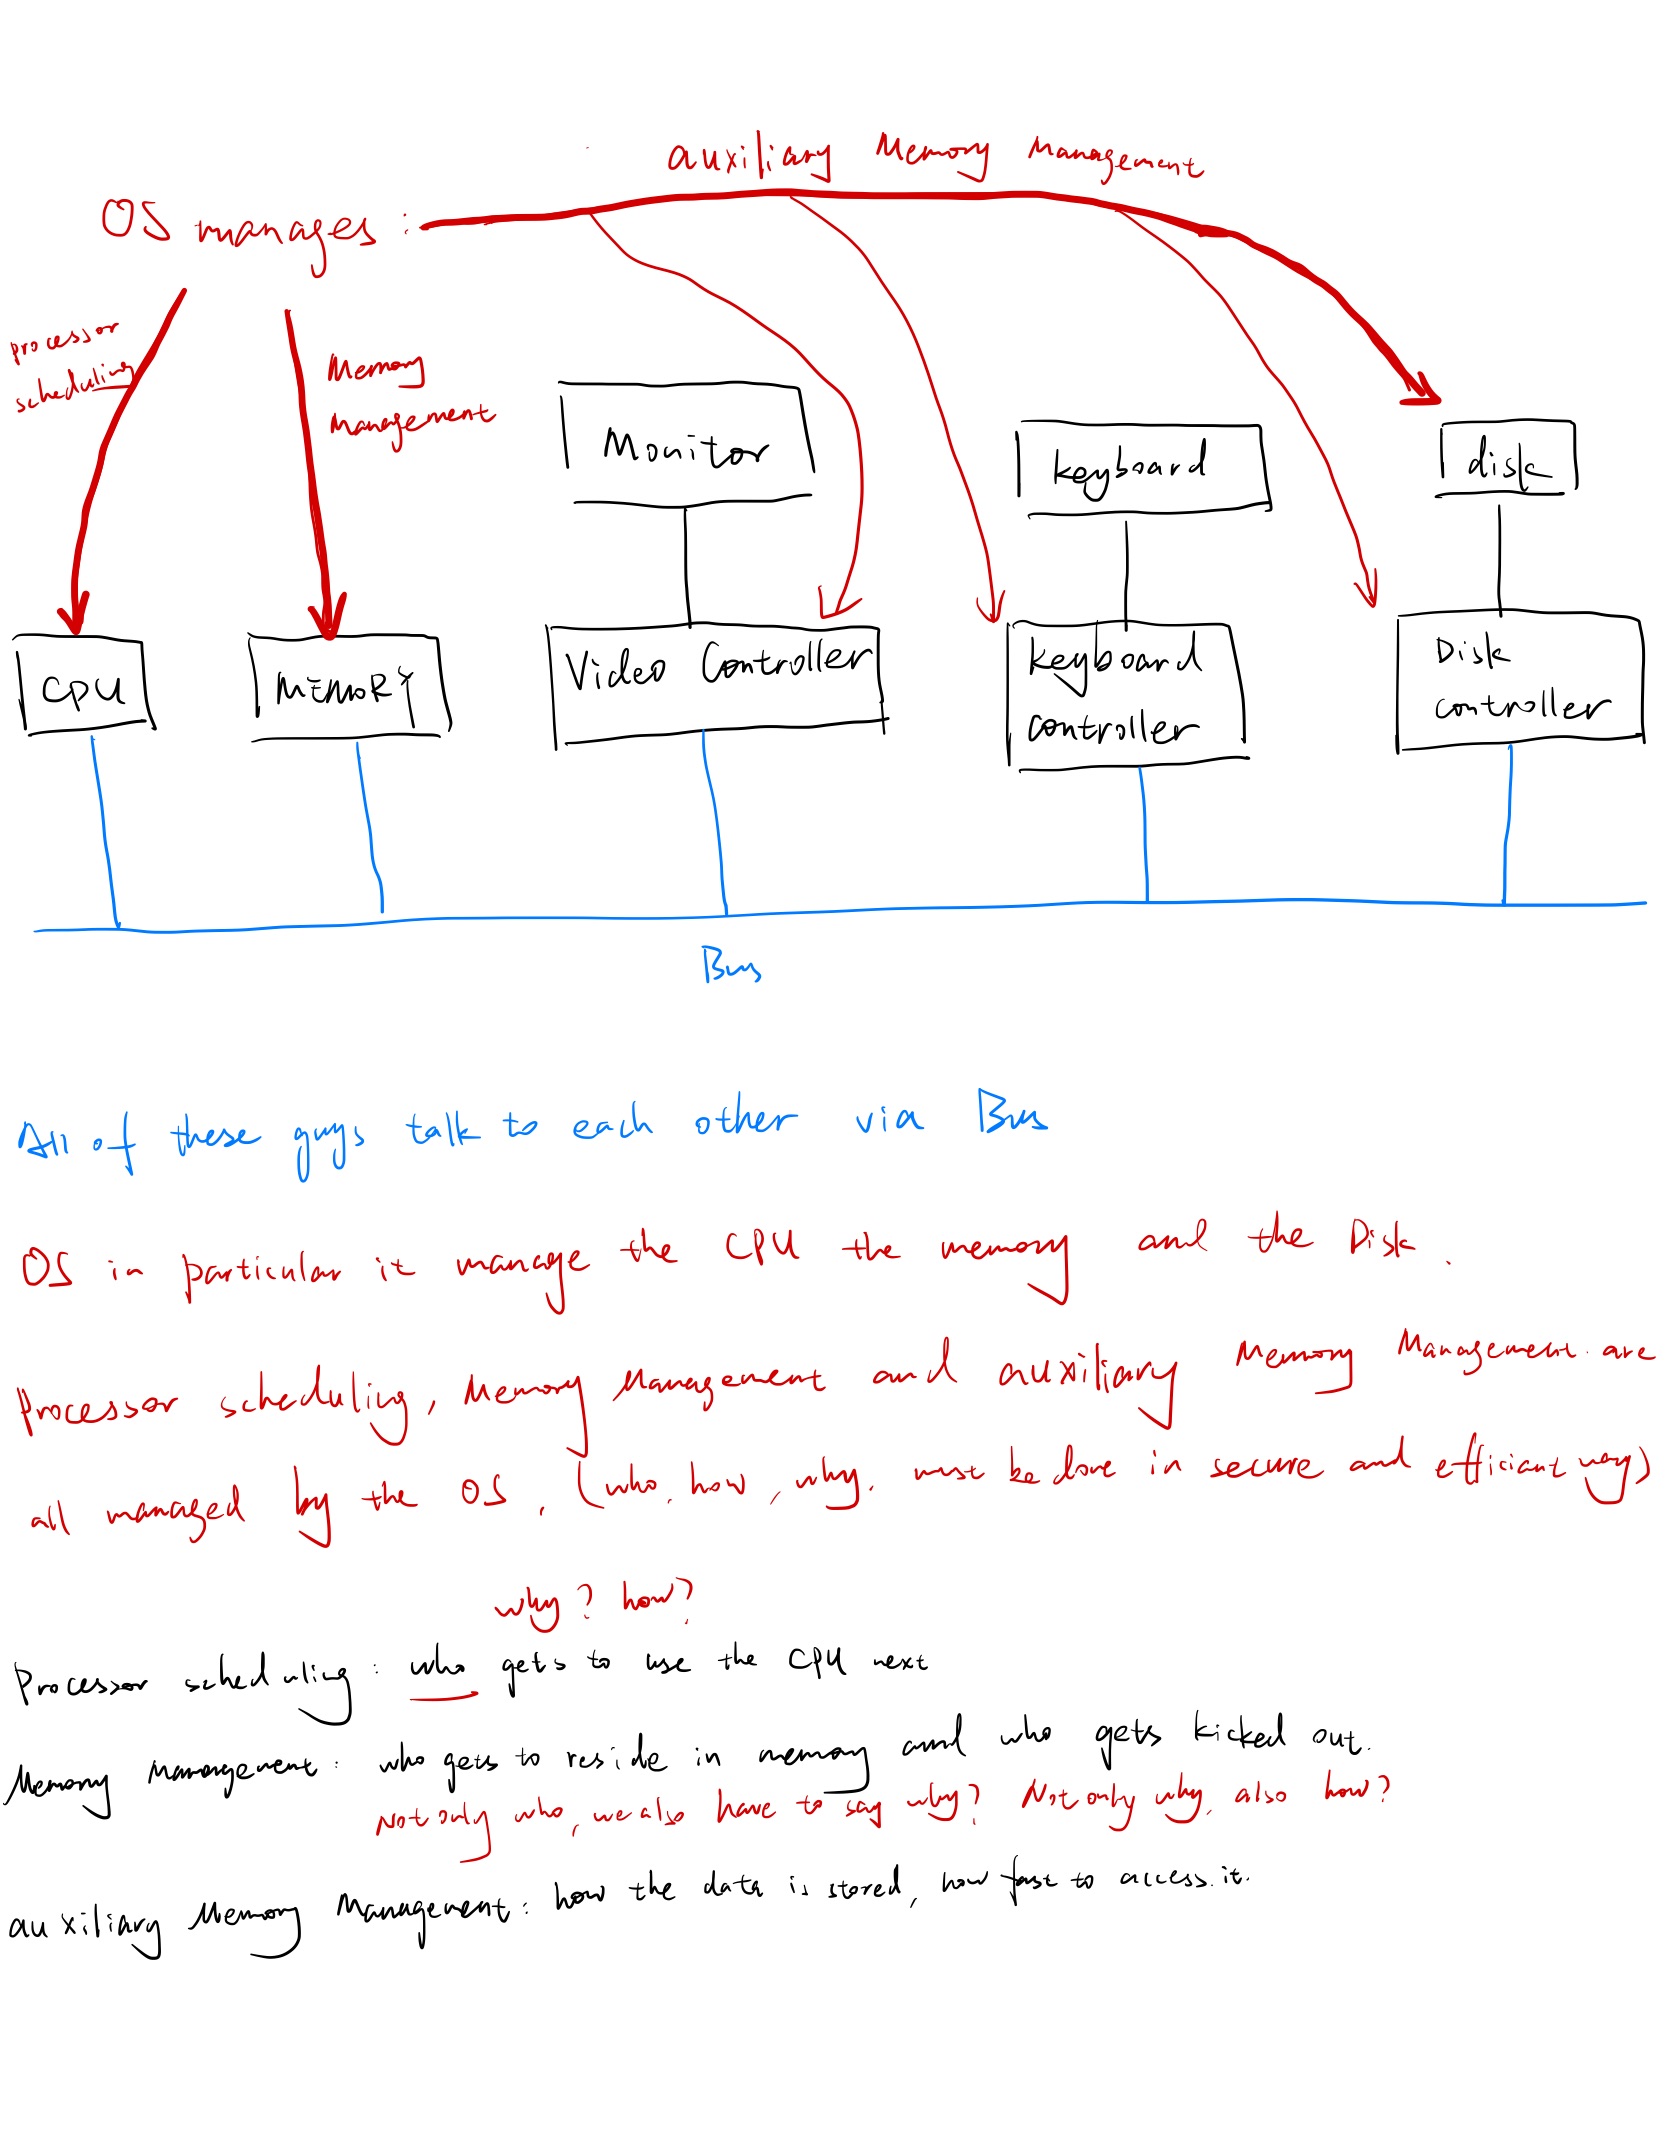 auxiliary Memory Management
OS manages :
processor
scheduling
Memory
Management
Monitor
keyboard
disk
CPU
MEMORY
Video Controller
keyboard
controller
Disk
controller
Bus
All of these guys talk to each other via Bus
OS in particular it manage the CPU the memory and the Disk.
Processor scheduling, Memory Management and auxiliary Memory Management are
all managed by the OS, (who, how, why, must be done in secure and efficiant way)
why? how?
Processor scheduling: who gets to use the CPU next
Memory Management: who gets to reside in memory and who gets kicked out.
Not only who, we also have to say why? Not only why, also how?
auxiliary Memory Management: how the data is stored, how fast to access it.